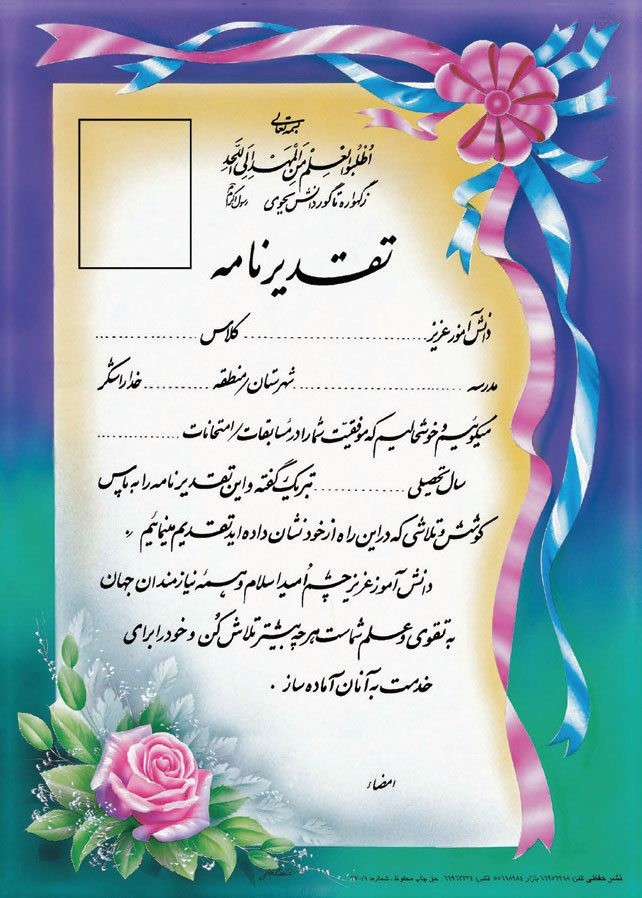 بسمه تعالی
اُطْلُبُوا الْعِلْمَ مِنَ الْمَهْدِ اِلَی اللَّحَدِ
ز گهواره تا گور دانش بجوی رسول اکرم
تقدیرنامه
دانش آموز عزیز .................... کلاس ....................
مدرسه .................... شهرستان/منطقه .................... خدا را شکر
میگوئیم و خوشحالیم که موفقیّت شما را در مسابقات/امتحانات ....................
سال تحصیلی .................... تبریک گفته و این تقدیرنامه را به پاس
کوشش و تلاشی که در این راه از خود نشان داده اید تقدیم مینمائیم .
دانش آموز عزیز چشم اُمید اسلام و همهٔ نیازمندان جهان
به تقوی و علم شماست هر چه بیشتر تلاش کُن و خود را برای
خدمت به آنان آماده ساز .
امضاء
نشر حفظی تلفن: ۶۶۹۵۶۹۱۸ بازار ۵۵۶۱۸۹۸۴ فکس: ۶۶۹۶۳۳۳۴ حق چاپ محفوظ . شماره: ۲۷۰/۱